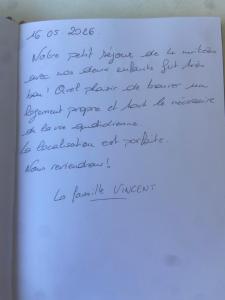 16 05 2026.
Notre petit séjour de la
avec nos deux enfants fut très
bon! Quel plaisir de trouver un
logement propre et tout le nécessaire
de la vie quotidienne.
La localisation est parfaite.
Nous reviendrons!
La famille VINCENT